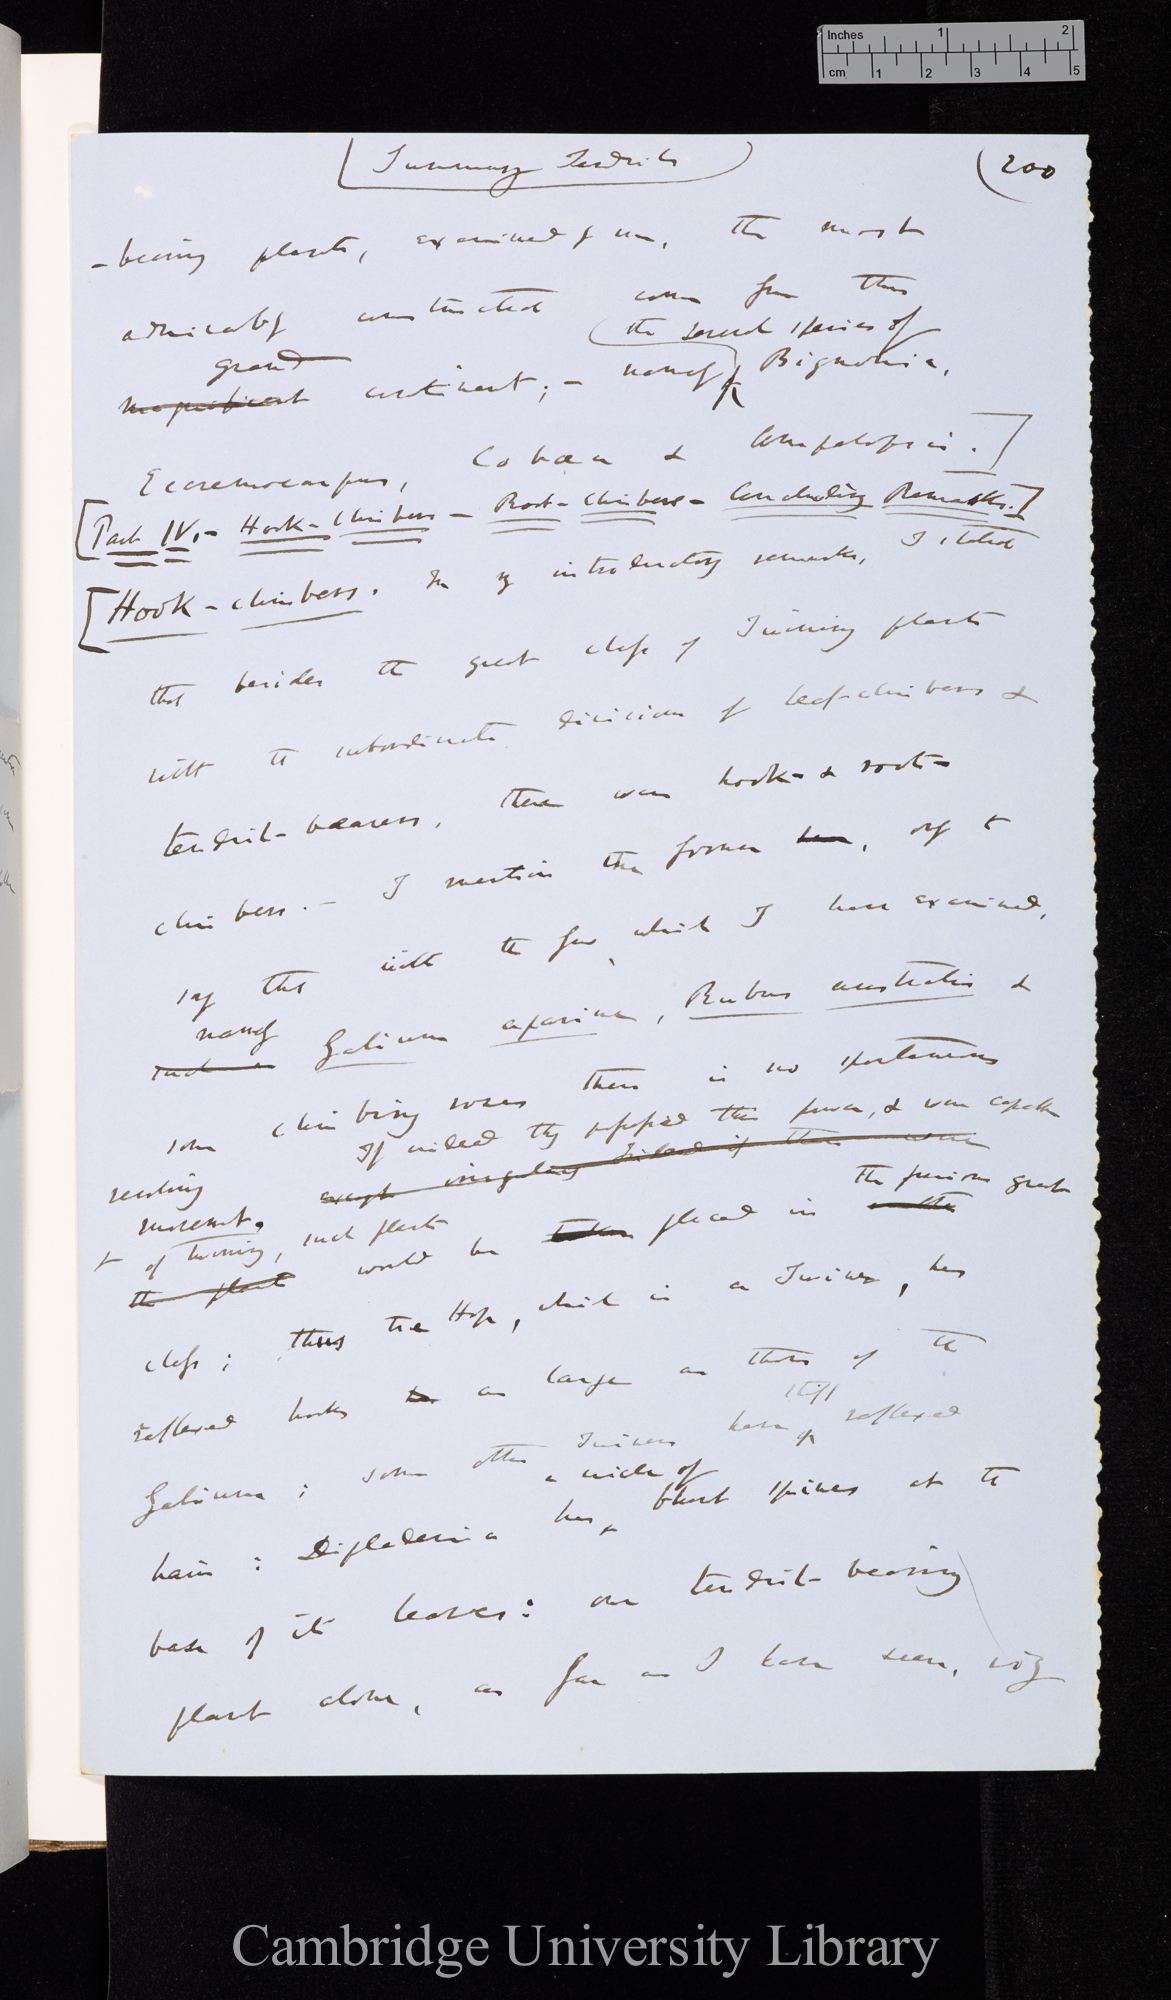 Inches 1 2
cm 1 2 3 4 5
Summary Tendrils
200
-bearing plants, examined by me, the most
admirably constructed come from this
the several species of
grand
magnificent continent; - namely Bignonia,
Eccremocarpus, Cobæa & Ampelopsis.]
[Part IV. - Hook-Climbers - Root-Climbers - Concluding Remarks.]
[Hook-climbers. In my introductory remarks, I stated
that besides the great class of Twining plants
with the subordinate division of leaf-climbers &
tendril-bearers, there were hook- & root-
climbers. - I mention the former, only to
say that with the few which I have examined,
namely
such as Galium aparine, Rubus australis &
some climbing roses there is no spontaneous
If indeed they possessed this power, & were capable
revolving except irregularly Indeed if there were
movement.
of twining, such plants
the previous great
the plants would be placed in
class; thus the Hop, which is a Twiner, has
reflexed hooks as large as those of the
stiff
Galium; some other Twiners have reflexed
a circle of
hairs: Dipladenia has blunt spines at the
base of its leaves: one tendril-bearing
plant alone, as far as I have seen, viz
Cambridge University Library